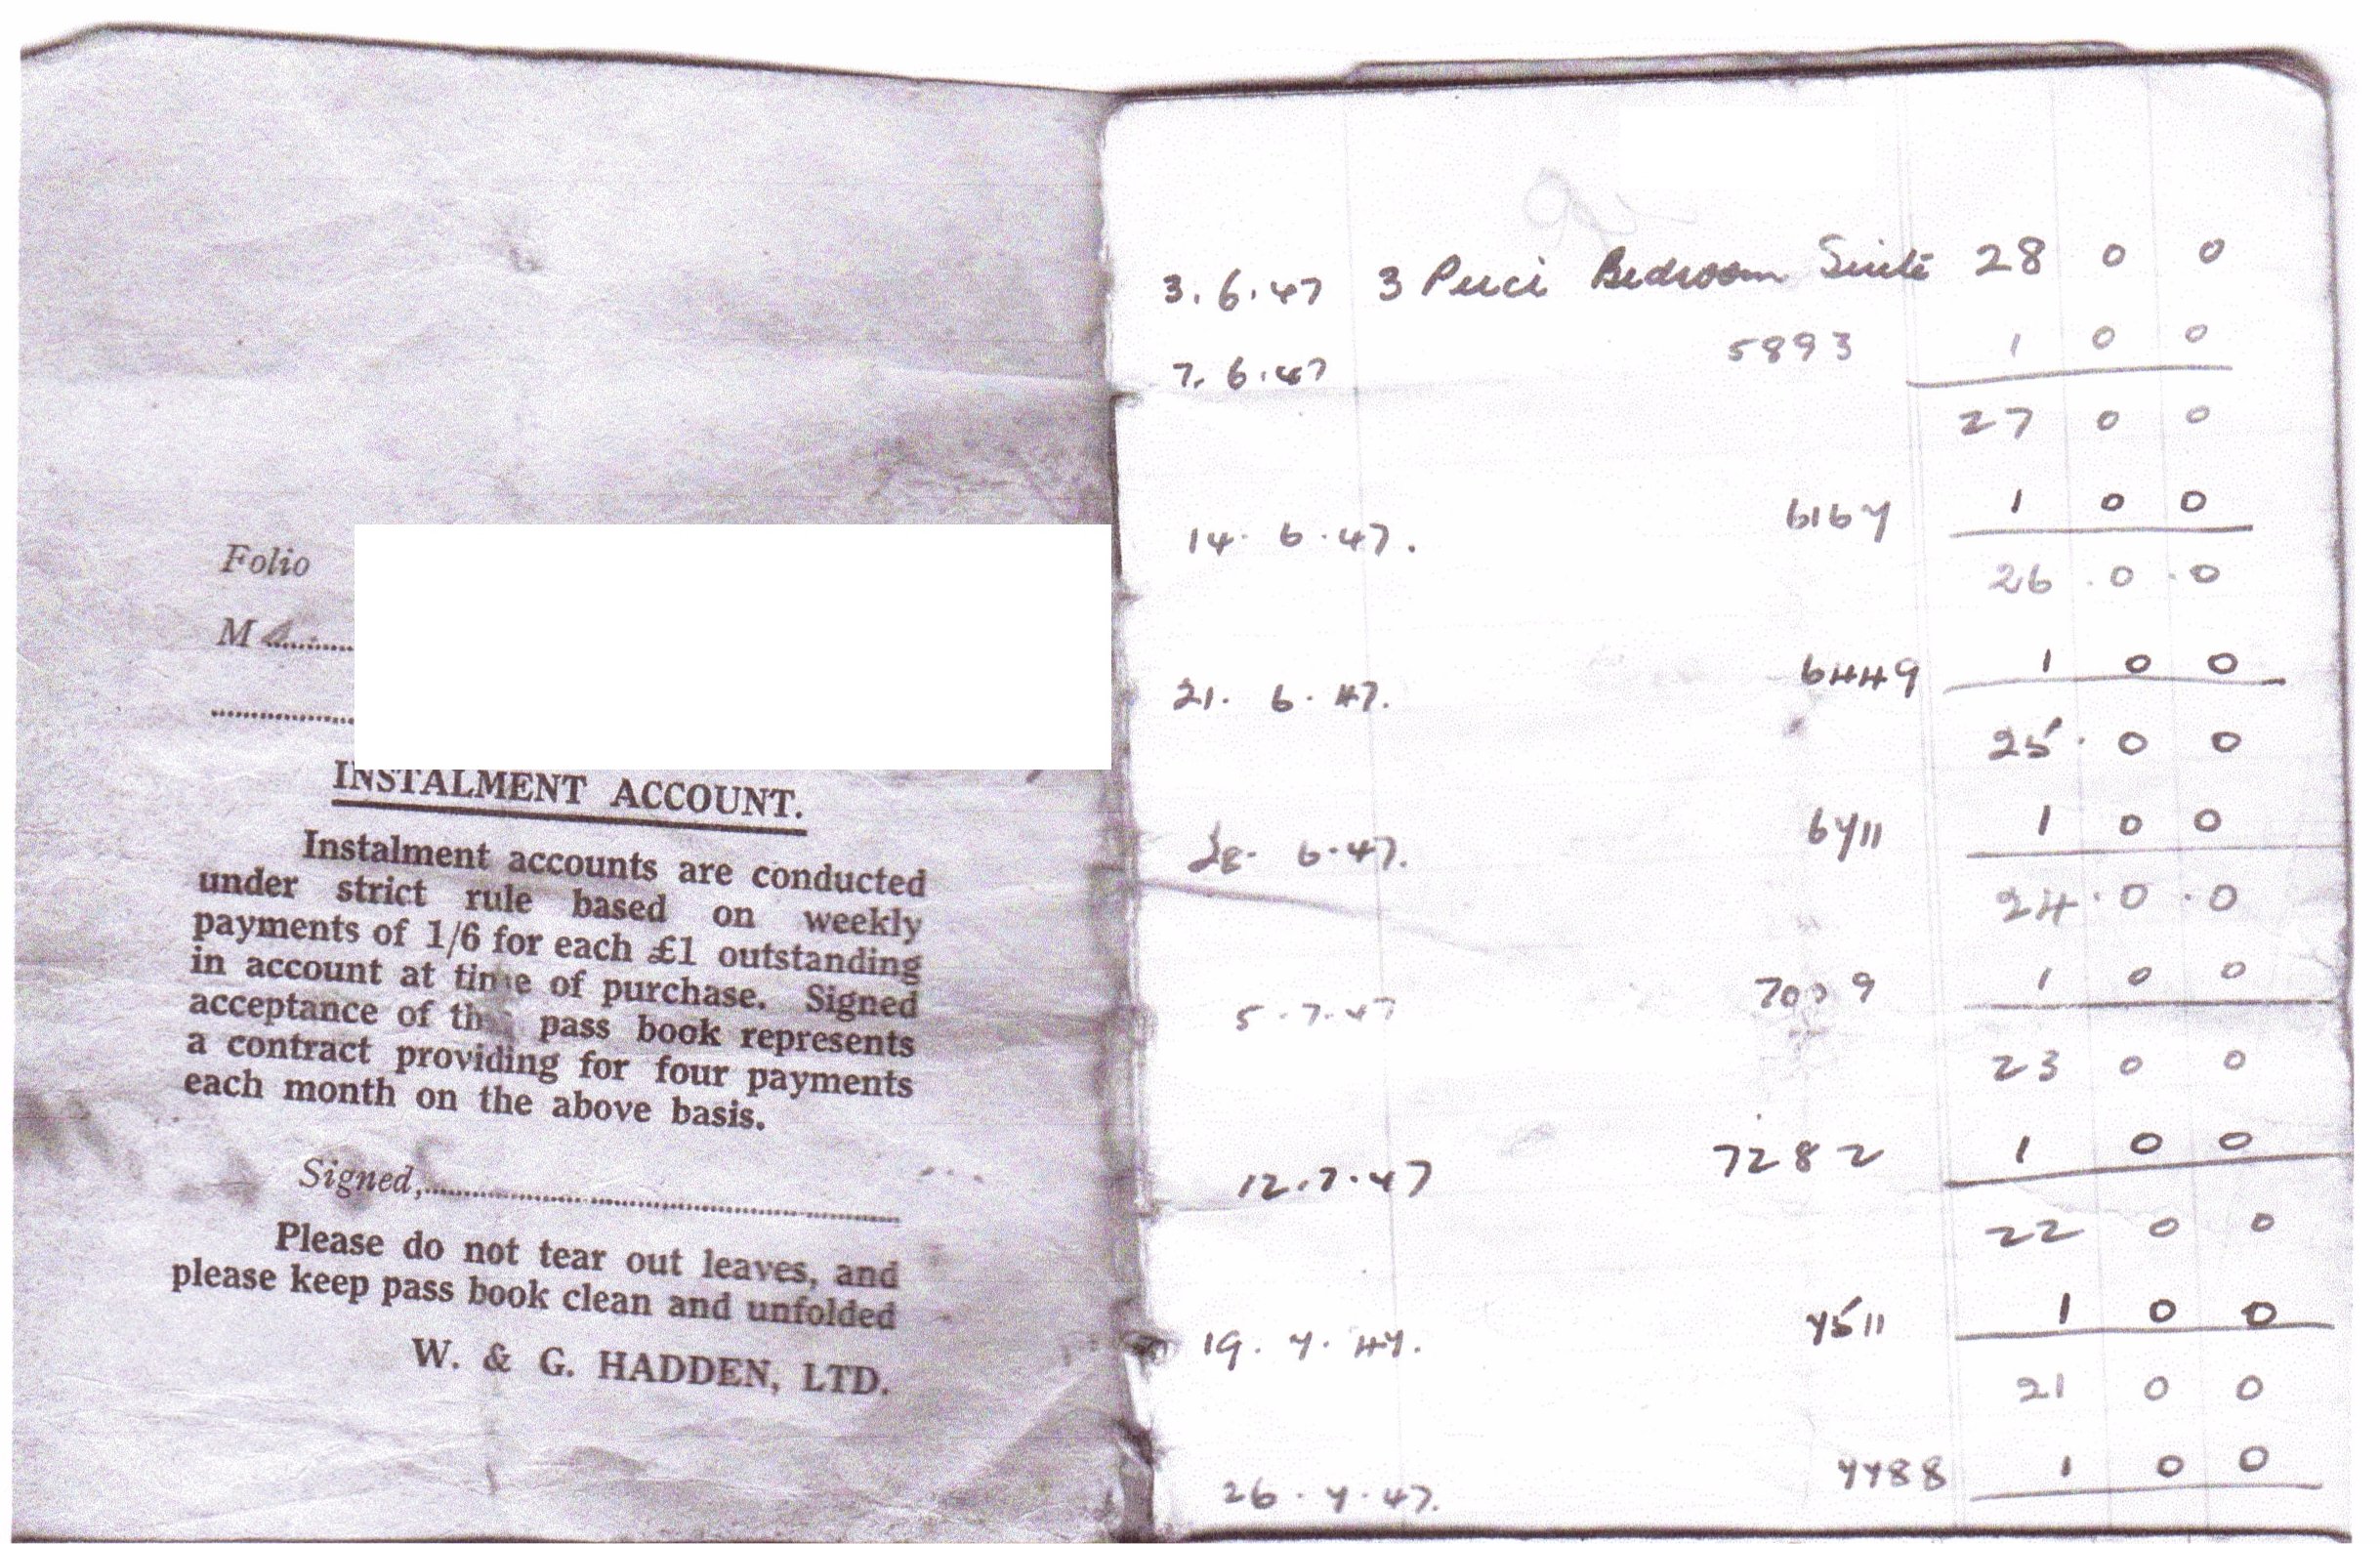 Folio
M
INSTALMENT ACCOUNT.
Instalment accounts are conducted
under strict rule based on weekly
payments of 1/6 for each £1 outstanding
in account at time of purchase. Signed
acceptance of this pass book represents
a contract providing for four payments
each month on the above basis.
Signed,
Please do not tear out leaves, and
please keep pass book clean and unfolded
W. & G. HADDEN, LTD.
3.6.47 3 Peice Bedroom Suite 28 0 0
7.6.47 5893 1 0 0
27 0 0
14.6.47. 6167 1 0 0
26.0.0
21.6.47. 6449 1 0 0
25.0 0
28.6.47. 6711 1 0 0
24.0.0
5.7.47 7009 1 0 0
23 0 0
12.7.47 7282 1 0 0
22 0 0
19.7.47. 7511 1 0 0
21 0 0
26.7.47. 7788 1 0 0